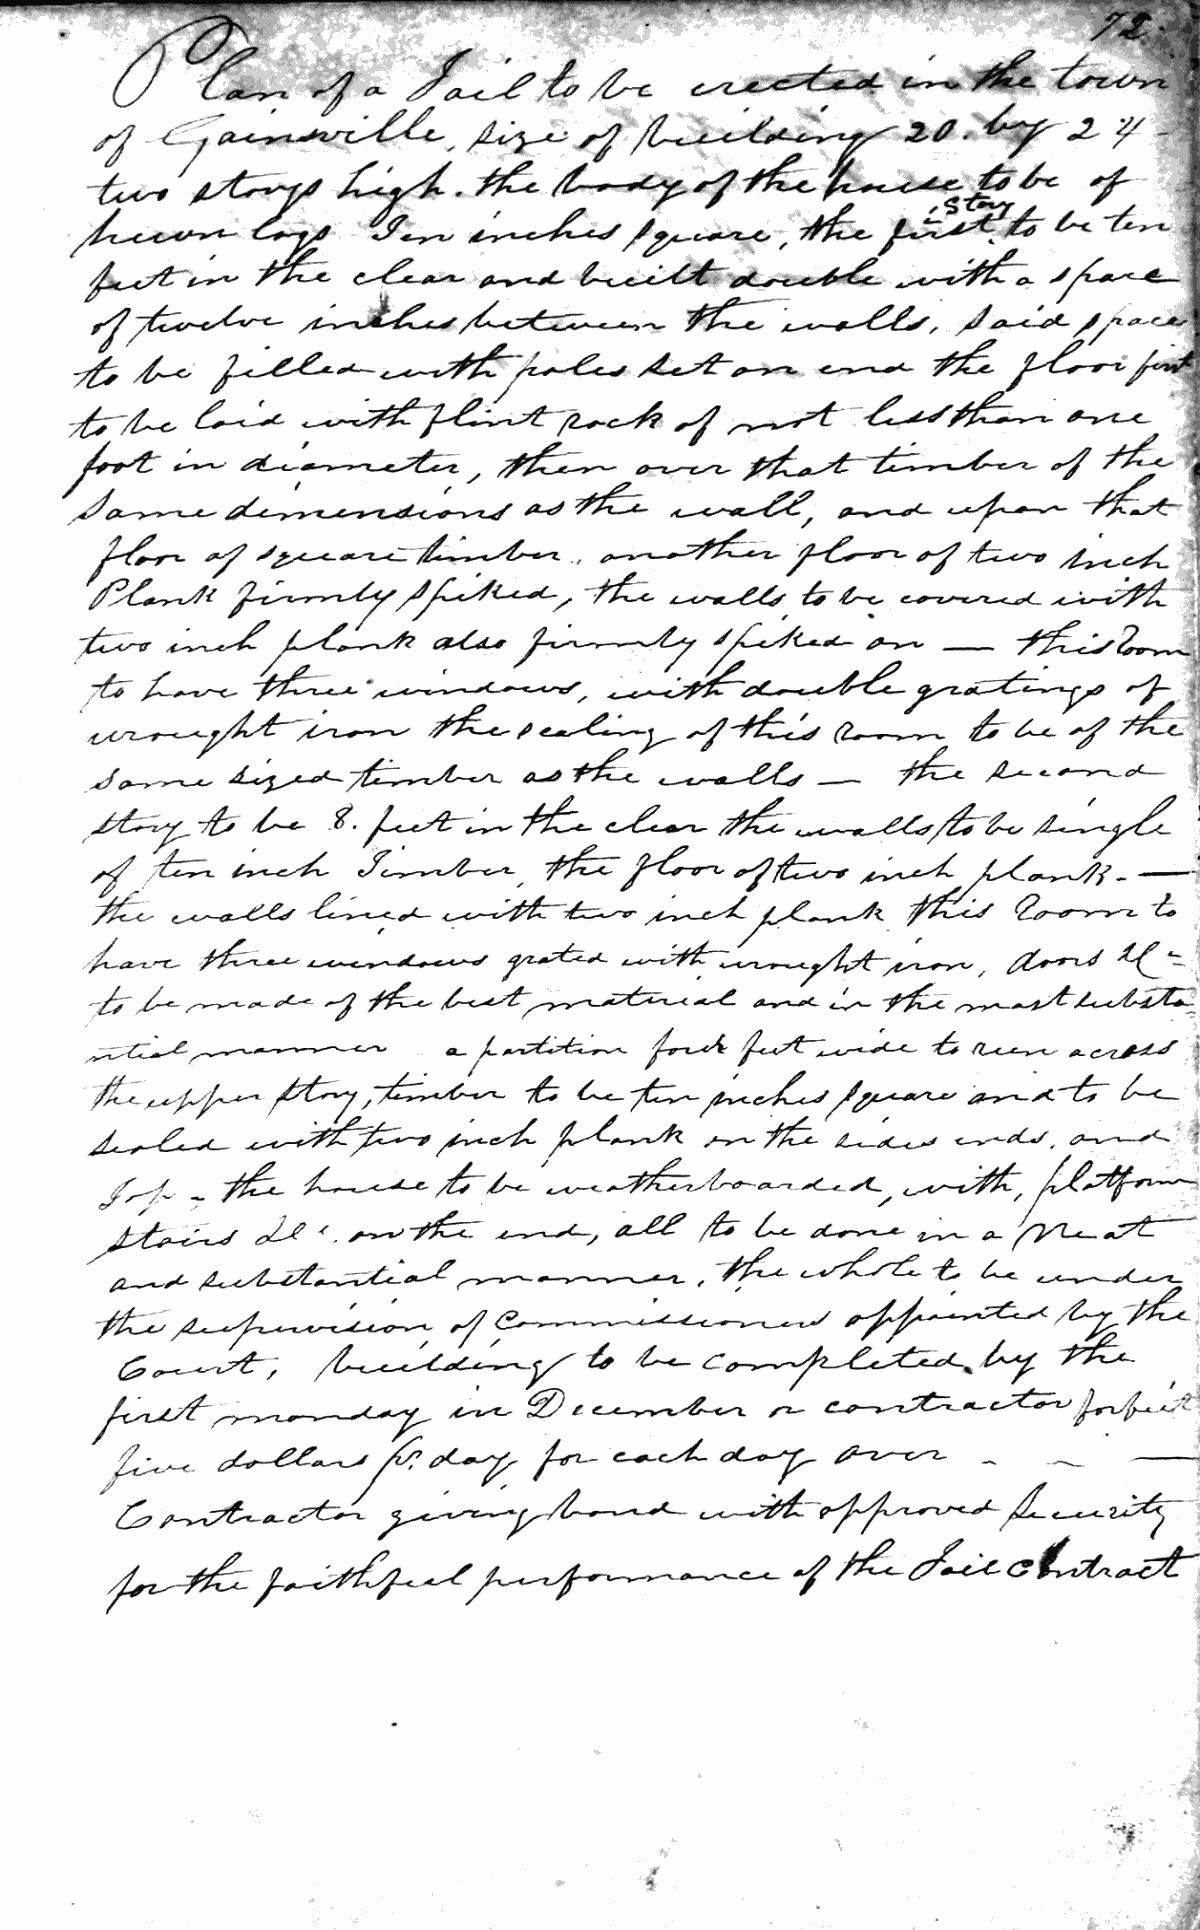 72.
Plan of a Jail to be erected in the town
of Gainsville, size of building 20. by 24 -
two storys high. the body of the house to be of
story
hewn logs Ten inches square, the first to be ten
feet in the clear and built double with a space
of twelve inches between the walls, said space
to be filled with poles set on end the floor first
to be laid with flint rock of not less than one
foot in diameter, then over that timber of the
same dimensions as the wall, and upon that
floor of square timber, another floor of two inch
Plank firmly spiked, the walls to be covered with
two inch plank also firmly spiked on — this Room
to have three windows, with double gratings of
wrought iron the sealing of this Room to be of the
same sized timber as the walls — the second
story to be 8. feet in the clear the walls to be single
of ten inch Timber, the floor of two inch plank. —
the walls lined with two inch plank this Room to
have three windows grated with wrought iron, doors &c =
to be made of the best material and in the most substa=
ntial manner a partition four feet wide to run across
the upper story, timber to be ten inches square and to be
sealed with two inch plank on the sides ends, and
Top - the house to be weatherboarded, with, platform
stairs &c. on the end, all to be done in a Neat
and substantial manner, the whole to be under
the supervision of Commissioners appointed by the
Court, building to be completed by the
first monday in December or contractor forfeit
five dollars pr. day for each day over - - —
Contractor giving bond with approved Security
for the faithful performance of the Jail contract